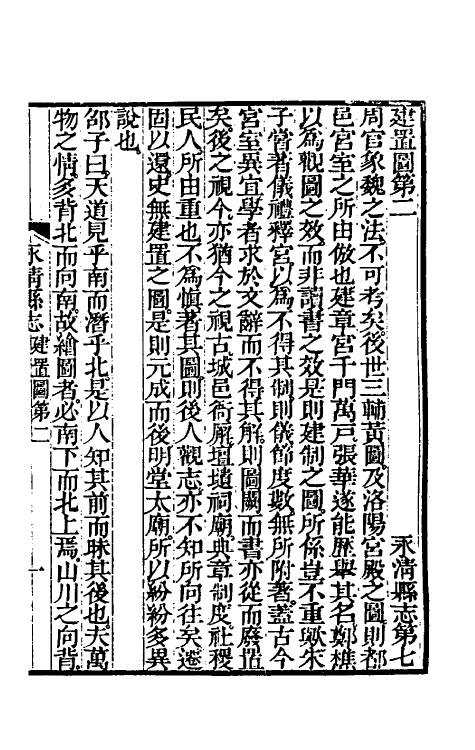 建置圖第二　永清縣志第七
周官象魏之法不可考矣後世三輔黃圖及洛陽宮殿之圖則都
邑宮室之所由倣也建章宮千門萬戸張華遂能歷舉其名鄭樵
以爲觀圖之效而非讀書之效是則建制之圖所係豈不重歟朱
子嘗著儀禮釋宮以爲不得其制則儀節度數無所附著蓋古今
宮室異宜學者求於文辭而不得其解則圖闕而書亦從而廢置
矣後之視今亦猶今之視古城邑衙廨壇壝祠廟典章制度社稷
民人所由重也不爲慎著其圖則後人觀志亦不知所向往矣遷
固以還史無建置之圖是則元成而後明堂太廟所以紛紛多異
說也
邵子曰天道見乎南而潛乎北是以人知其前而昧其後也夫萬
物之情多背北而向南故繪圖者必南下而北上焉山川之向背
永清縣志 建置圖第二 一